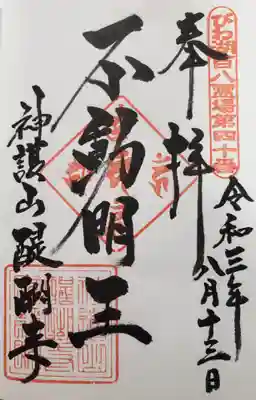 びわ湖百八霊場第四十番
奉拝
令和三年八月十三日
不動明王
神護山醍醐寺